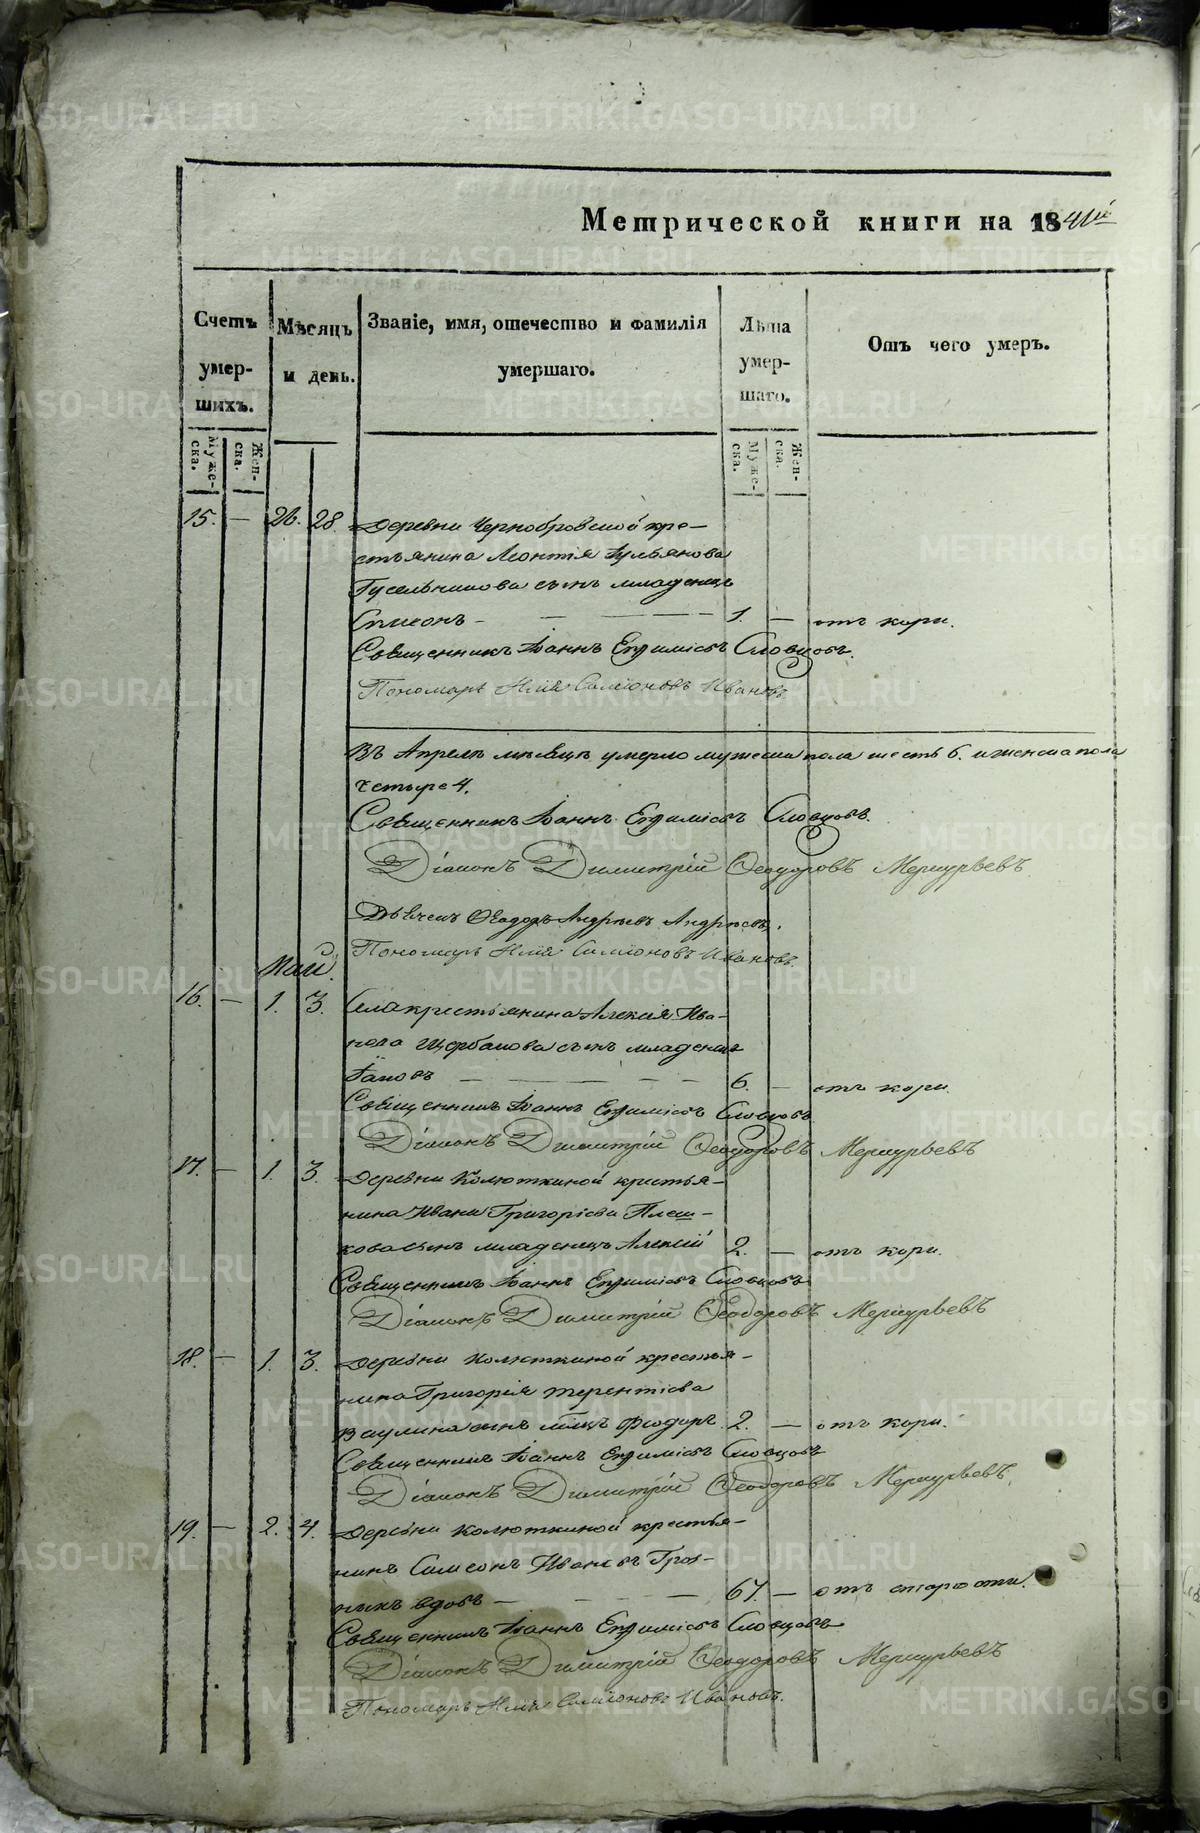 Метрической книги на 1841й
Счетъ умер-шихъ.
Мѣсяцъ и день.
Званіе, имя, отечество и фамилія умершаго.
Лѣта умер-шаго.
Отъ чего умеръ.
Муже-ска.
Жен-ска.
Муже-ска.
Жен-ска.
15. — 26. 28. Деревни Чернобровской кре-
стьянина Леонтія Ульянова
Гусельникова сынъ младенецъ
Симеонъ — 1. — отъ кори.
Священникъ Іоаннъ Евѳиміевъ Словцовъ.
Пономарь Илія Симеоновъ Ивановъ
Въ Апрелѣ мѣсяцѣ умерло мужеска пола шесть 6. и женска пола
четыре 4.
Священникъ Іоаннъ Евѳиміевъ Словцовъ.
Діаконъ Димитрій Ѳеодоровъ Меркурьевъ
Дьячекъ Ѳеодоръ Андреевъ Андреевъ.
Пономарь Илія Симеоновъ Ивановъ.
Май.
16. — 1. 3. Села крестьянина Алексія Ива-
нова Щербакова сынъ младенецъ
Іаковъ — 6. — отъ кори.
Священникъ Іоаннъ Евѳиміевъ Словцовъ
Діаконъ Димитрій Ѳеодоровъ Меркурьевъ
17. — 1. 3. Деревни Колюткиной крестья-
нина Ивана Григоріева Плеш-
кова сынъ младенецъ Алексій 2. — отъ кори.
Священникъ Іоаннъ Евѳиміевъ Словцовъ
Діаконъ Димитрій Ѳеодоровъ Меркурьевъ
18. — 1. 3. Деревни Колюткиной крестья-
нина Григорія Терентіева
Ваулина сынъ млцъ Ѳеодоръ 2. — отъ кори.
Священникъ Іоаннъ Евѳиміевъ Словцовъ
Діаконъ Димитрій Ѳеодоровъ Меркурьевъ.
19. — 2. 4. Деревни Колюткиной крестья-
нинъ Симеонъ Ивановъ Гроз-
ныхъ вдовъ — 67. — отъ старости.
Священникъ Іоаннъ Евѳиміевъ Словцовъ
Діаконъ Димитрій Ѳеодоровъ Меркурьевъ
Пономарь Илія Симеоновъ Ивановъ.
METRIKI.GASO-URAL.RU